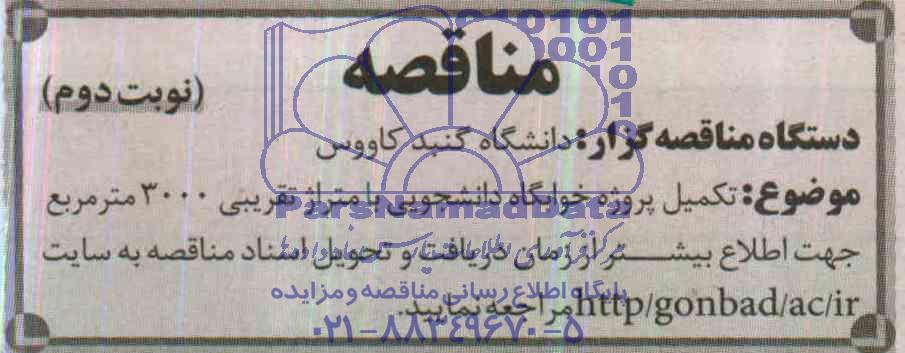 مناقصه
(نوبت دوم)
دستگاه مناقصه گزار: دانشگاه گنبد کاووس
موضوع: تکمیل پروژه خوابگاه دانشجویی با متراژ تقریبی ۳۰۰۰ مترمربع
جهت اطلاع بیشتر از زمان دریافت و تحویل اسناد مناقصه به سایت
http/gonbad/ac/ir مراجعه نمایید.
ParsNamadData
پایگاه اطلاع رسانی مناقصه و مزایده
۰۲۱-۸۸۳۴۹۶۷۰-۵